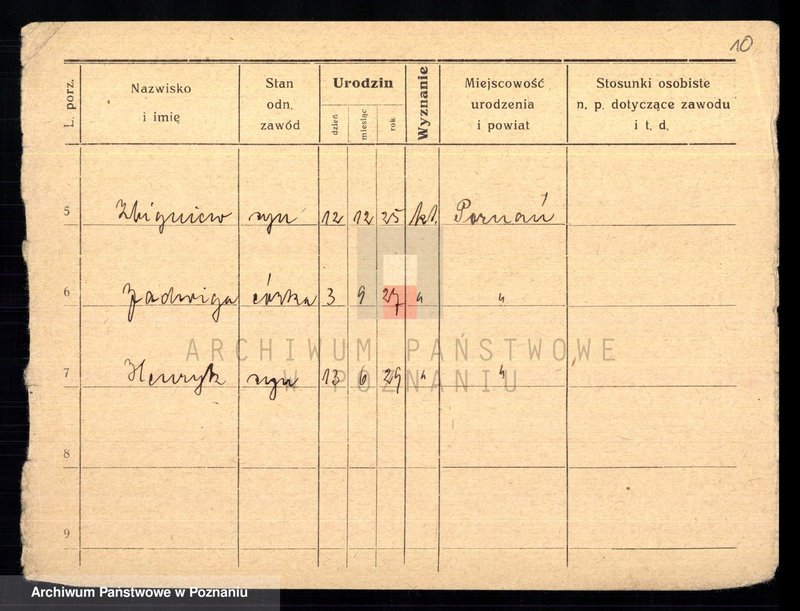 10
L. porz.
Nazwisko
i imię
Stan
odn.
zawód
Urodzin
dzień
miesiąc
rok
Wyznanie
Miejscowość
urodzenia
i powiat
Stosunki osobiste
n. p. dotyczące zawodu
i t. d.
5 Zbigniew syn 12 12 25 kt. Poznań
6 Jadwiga córka 3 9 27 " "
ARCHIWUM PAŃSTWOWE
W POZNANIU
7 Henryk syn 13 6 29 " "
8
9
Archiwum Panstwowe w Poznaniu